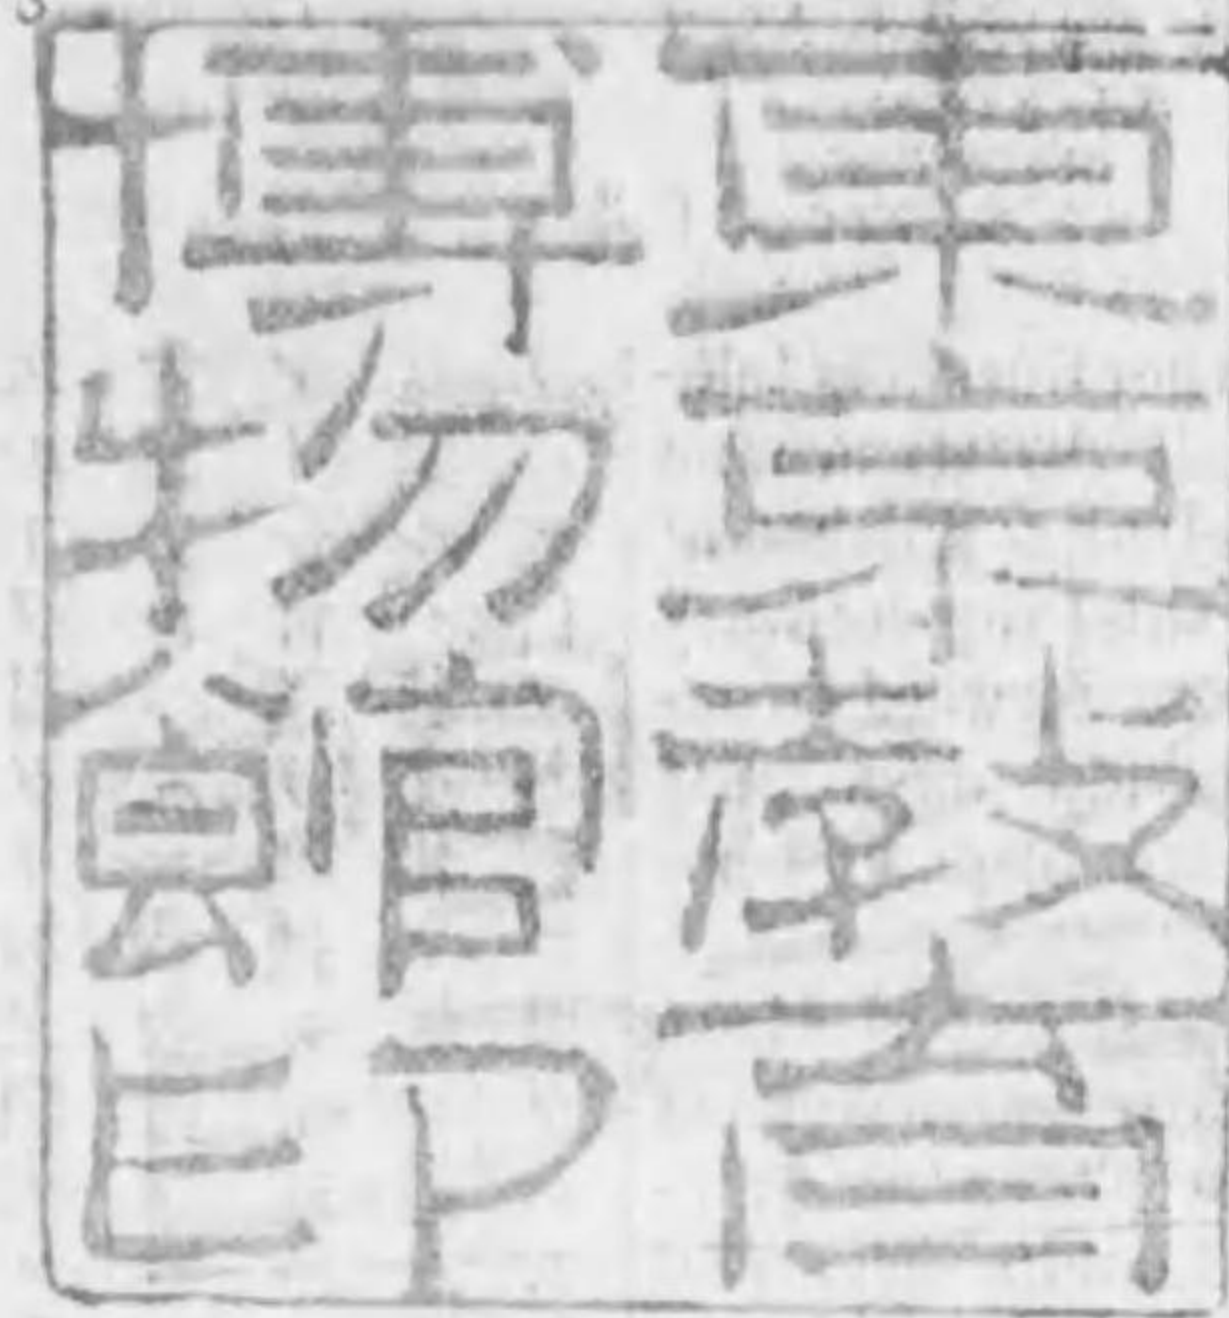 東京教育
博物館印